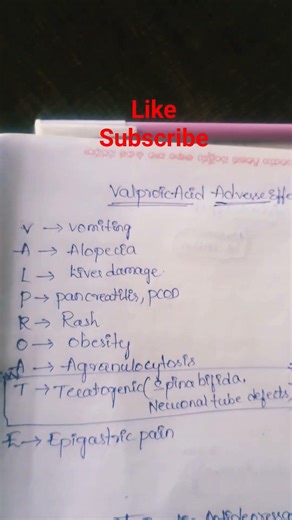 Like
Subscribe
Valproic Acid Adverse Effe
V → Vomiting
A → Alopecia
L → Liver damage
P → pancreatitis, PCOD
R → Rash
O → Obesity
A → Agranulocytosis
T → Teratogenic (Spina bifida,
Neuronal tube defects,
E → Epigastric pain